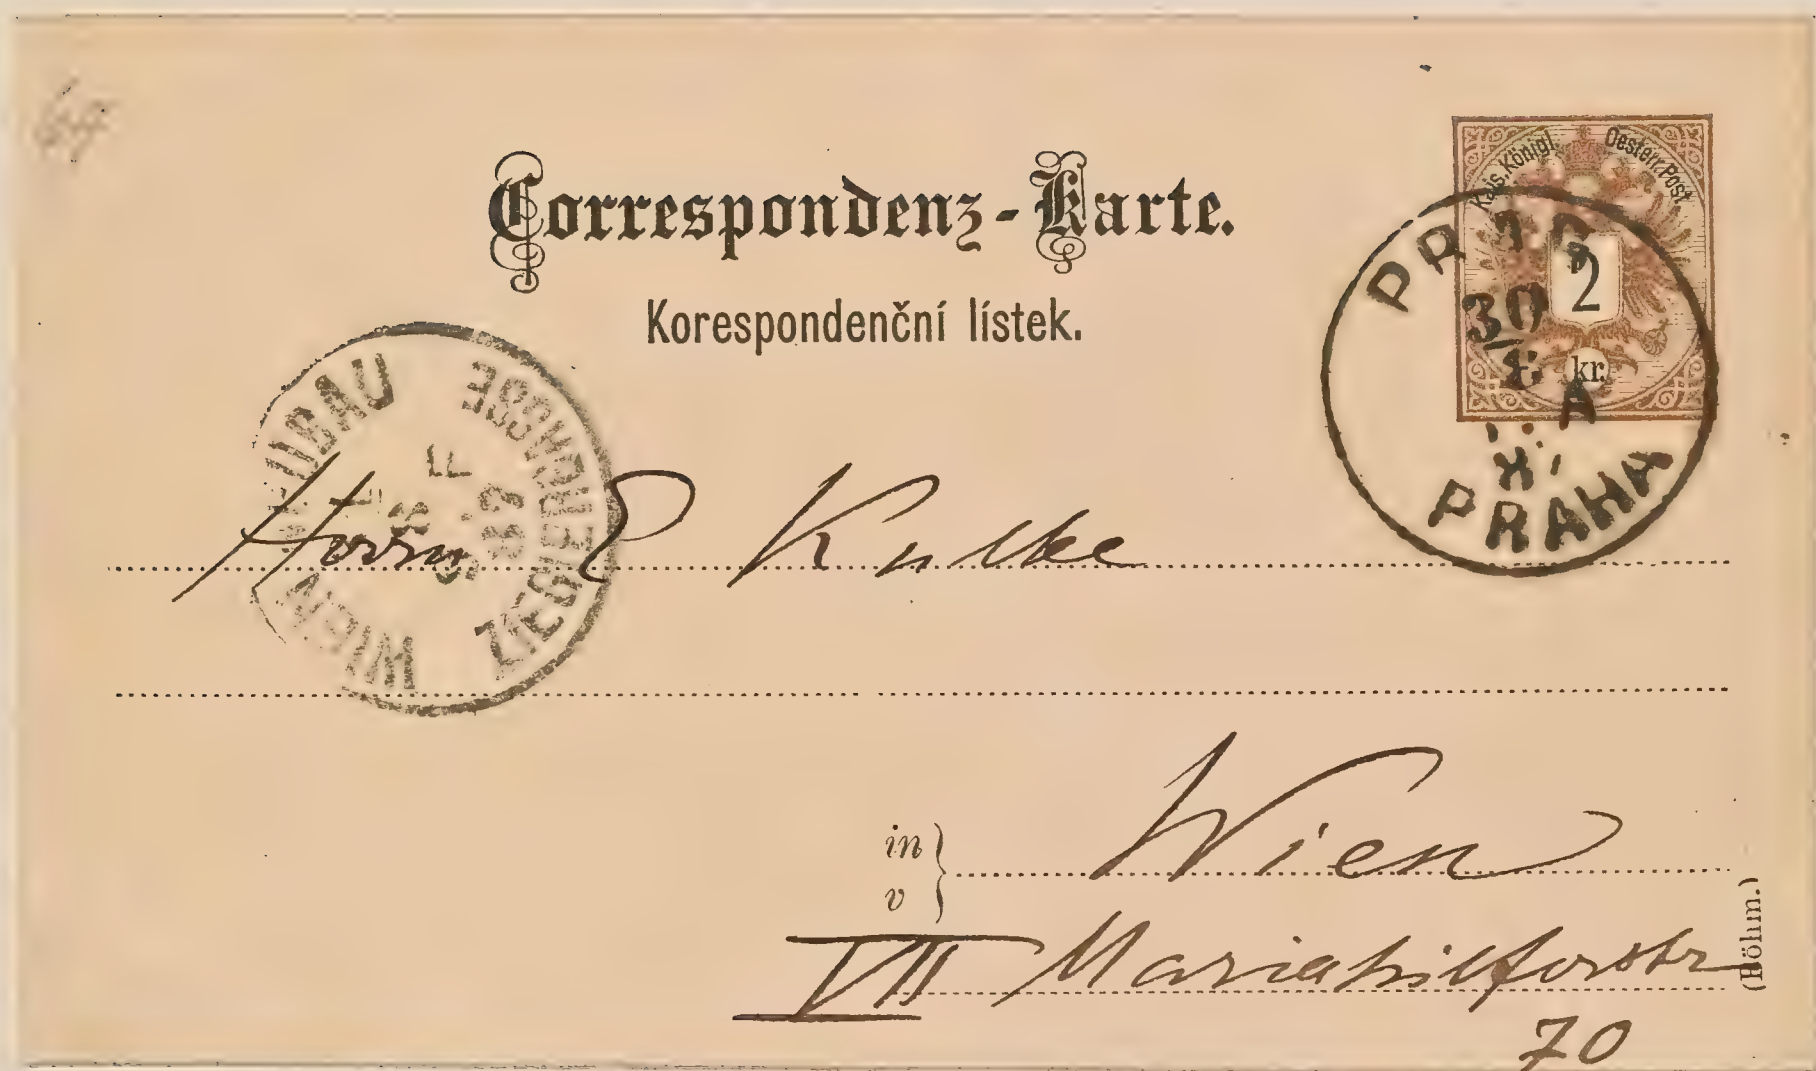 Correspondenz-Karte.
Korespondenční lístek.
Kais. Königl. Oesterr. Post
2
kr.
PRAG
30
A
PRAHA
NEUBAU
ZIEGLERGASSE
F
WIEN
Herrn E Kulke
in
v
Wien
VII Mariahilferstr
70
(Böhm.)